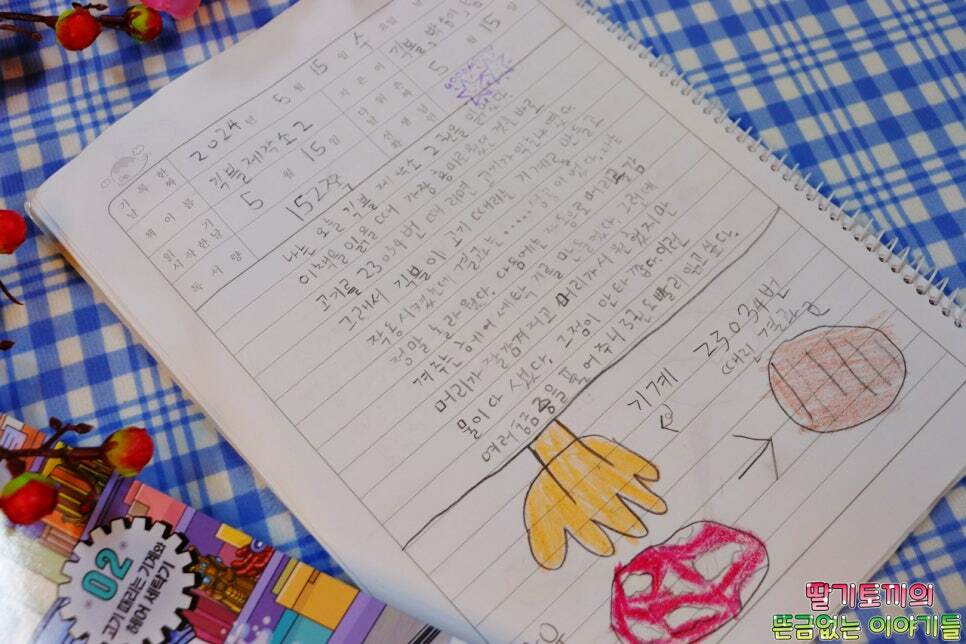 2024년 5월 15일 수요일
기록한 날
책 이름 긱블 제작소2 지은이 긱블, 박송이
읽기 시작한 날 5월 15일 다 읽은 날 5월 15일
독서량 152쪽 확인
나는 오늘 긱블 제작소 2권을 읽었다.
이책을 읽을때 가장 흥미로웠던 것은 바로
고기를 23034번 때리면 고기가 익는다였다.
그래서 긱블이 고기 때리는 기계를 만들고
작동시켰는데 결과는...... 성공이었다. 나는
정말 놀라웠다. 다음에는 자동으로 머리를 감
겨주는 헤어 세탁기를 만들었다. 그런데
머리가 잘 감겨지고 머리가 시원했지만
물이 다 샜다. 그점이 안타깝다. 이런
여러 궁금증을 풀어주니 3권도 빨리 읽고 싶다.
기계
23034번
때린 결과
02
고기 때리는 기계와
헤어 세탁기
딸기토끼의
뜬금없는 이야기들